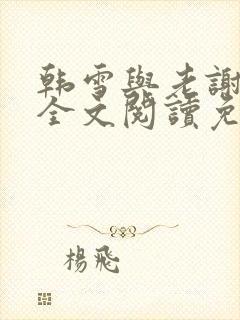 韩雪與老謝
全文閱讀免
楊飛